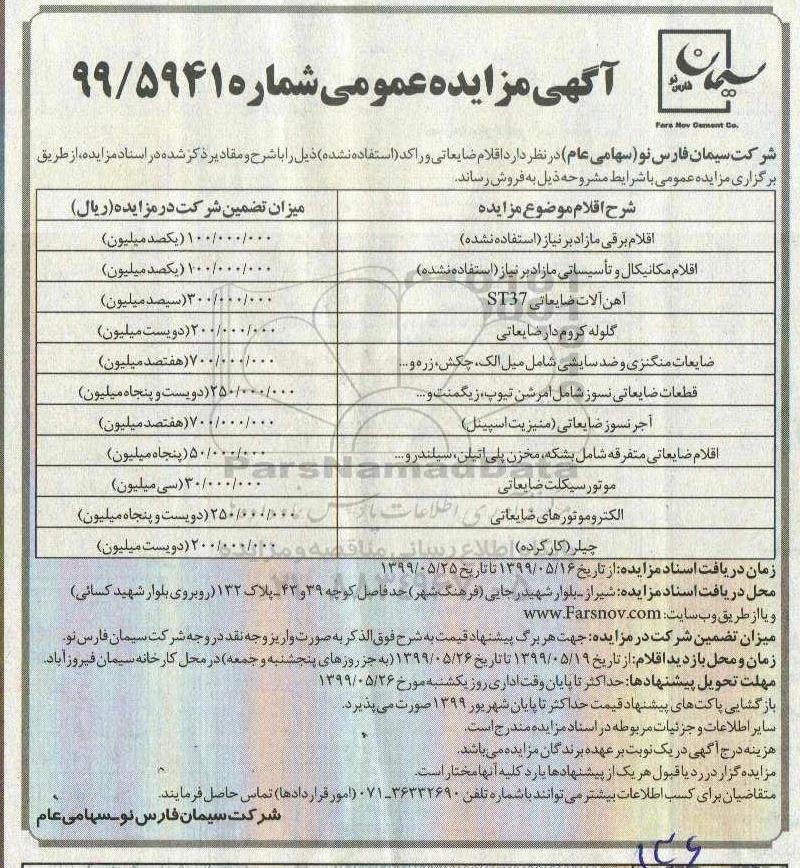 سیمان فارس نو
Fars Nov Cement Co.
آگهی مزایده عمومی شماره ۹۹/۵۹۴۱
شرکت سیمان فارس نو (سهامی عام) در نظر دارد اقلام ضایعاتی و راکد (استفاده نشده) ذیل را با شرح و مقادیر ذکر شده در اسناد مزایده، از طریق
برگزاری مزایده عمومی با شرایط مشروحه ذیل به فروش رساند.
شرح اقلام موضوع مزایده	میزان تضمین شرکت در مزایده (ریال)
اقلام برقی مازاد بر نیاز (استفاده نشده)	۱۰۰/۰۰۰/۰۰۰ (یکصد میلیون)
اقلام مکانیکال و تأسیساتی مازاد بر نیاز (استفاده نشده)	۱۰۰/۰۰۰/۰۰۰ (یکصد میلیون)
آهن آلات ضایعاتی ST37	۳۰۰/۰۰۰/۰۰۰ (سیصد میلیون)
گلوله کروم دار ضایعاتی	۲۰۰/۰۰۰/۰۰۰ (دویست میلیون)
ضایعات منگنزی و ضد سایشی شامل میل الک، چکش، زره و...	۷۰۰/۰۰۰/۰۰۰ (هفتصد میلیون)
قطعات ضایعاتی نسوز شامل امرشن تیوپ، زیگمنت و...	۲۵۰/۰۰۰/۰۰۰ (دویست و پنجاه میلیون)
آجر نسوز ضایعاتی (منیزیت اسپینل)	۷۰۰/۰۰۰/۰۰۰ (هفتصد میلیون)
اقلام ضایعاتی متفرقه شامل بشکه، مخزن پلی اتیلن، سیلندر و...	۵۰/۰۰۰/۰۰۰ (پنجاه میلیون)
موتور سیکلت ضایعاتی	۳۰/۰۰۰/۰۰۰ (سی میلیون)
الکتروموتورهای ضایعاتی	۲۵۰/۰۰۰/۰۰۰ (دویست و پنجاه میلیون)
چیلر (کارکرده)	۲۰۰/۰۰۰/۰۰۰ (دویست میلیون)
ParsNamadData
زمان دریافت اسناد مزایده: از تاریخ ۱۳۹۹/۰۵/۱۶ تا تاریخ ۱۳۹۹/۰۵/۲۵
محل دریافت اسناد مزایده: شیراز ـ بلوار شهید رجایی (فرهنگ شهر) حد فاصل کوچه ۳۹ و ۴۳ ـ پلاک ۱۳۲ (روبروی بلوار شهید کسائی)
و یا از طریق وب سایت: www.Farsnov.com
میزان تضمین شرکت در مزایده: جهت هر برگ پیشنهاد قیمت به شرح فوق الذکر به صورت واریز وجه نقد در وجه شرکت سیمان فارس نو.
زمان و محل بازدید اقلام: از تاریخ ۱۳۹۹/۰۵/۱۹ تا تاریخ ۱۳۹۹/۰۵/۲۶ (به جز روزهای پنجشنبه و جمعه) در محل کارخانه سیمان فیروزآباد.
مهلت تحویل پیشنهادها: حداکثر تا پایان وقت اداری روز یکشنبه مورخ ۱۳۹۹/۰۵/۲۶
بازگشایی پاکت‌های پیشنهاد قیمت حداکثر تا پایان شهریور ۱۳۹۹ صورت می‌پذیرد.
سایر اطلاعات و جزئیات مربوطه در اسناد مزایده مندرج است.
هزینه درج آگهی در یک نوبت بر عهده برندگان مزایده می‌باشد.
مزایده گزار در رد یا قبول هر یک از پیشنهادها یا رد کلیه آنها مختار است.
متقاضیان برای کسب اطلاعات بیشتر می‌توانند با شماره تلفن ۳۶۳۳۲۶۹۰ـ۰۷۱ (امور قراردادها) تماس حاصل فرمایند.
شرکت سیمان فارس نو ـ سهامی عام
۱۳۶